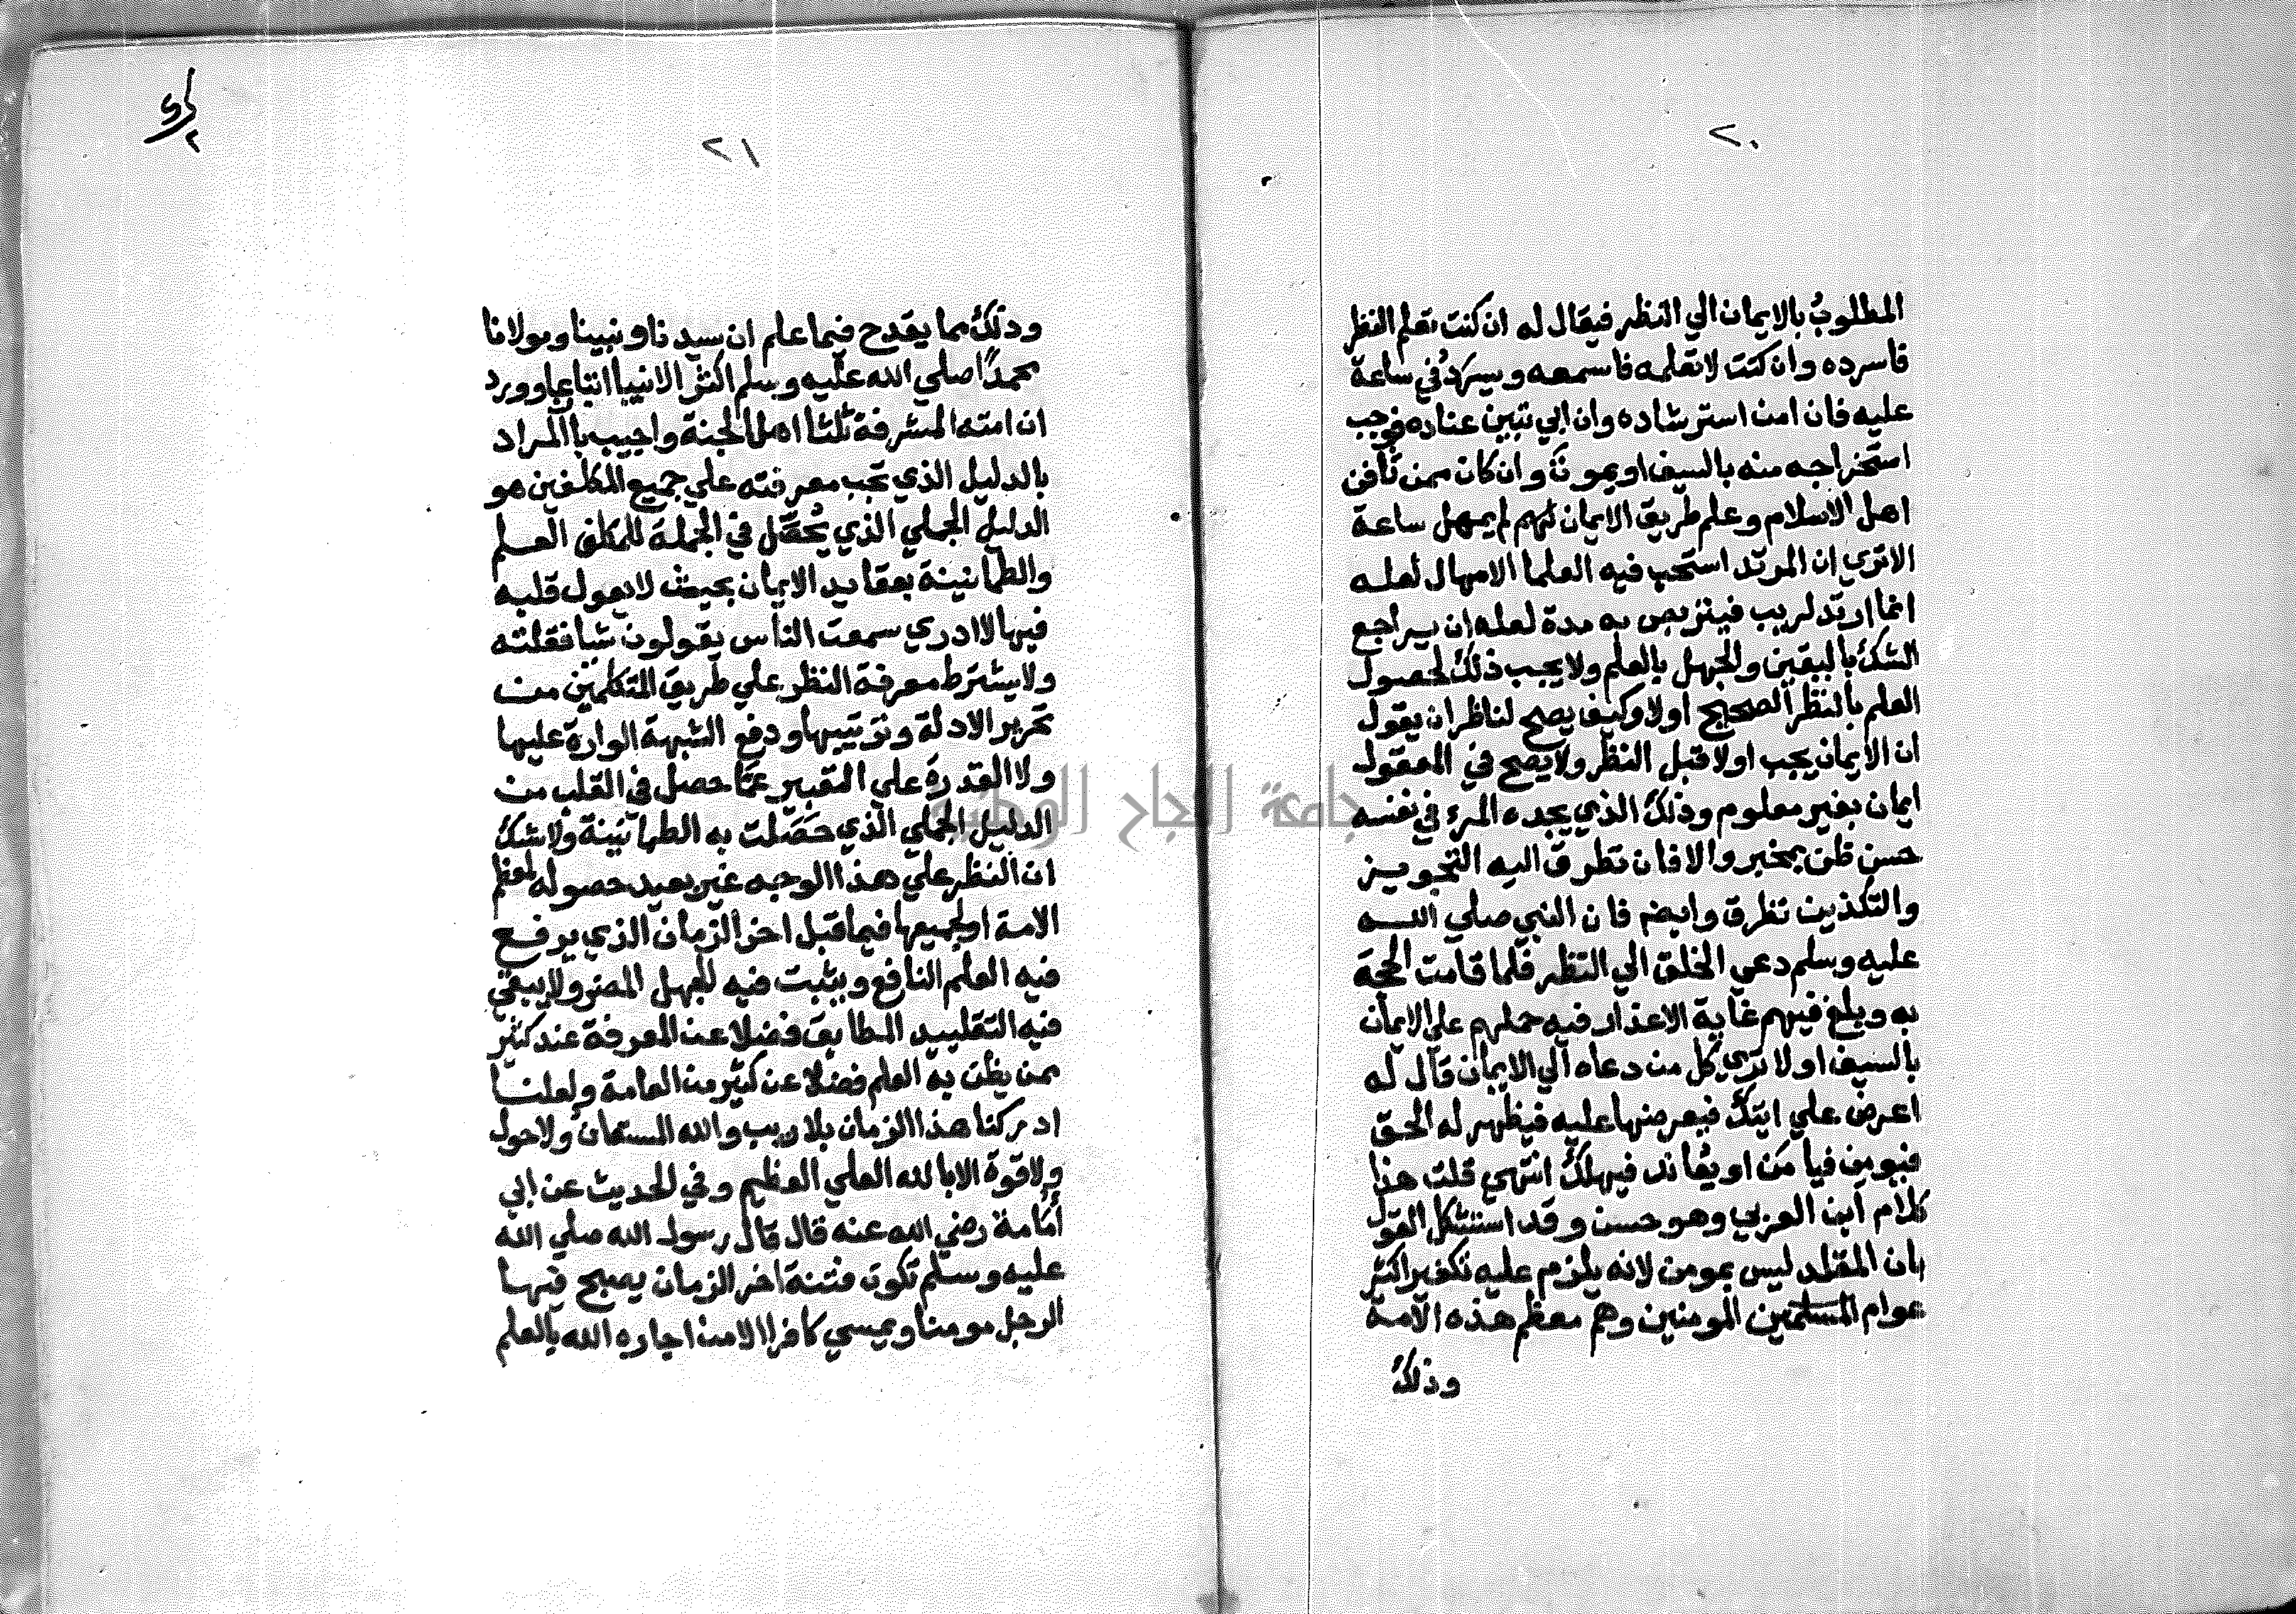 ٢٠
المطلوب بالايمان الي النظر فيقال له ان كنت تعلم النظر
فاسرده وان كنت لا تعلمه فاسمعه ويسرد في ساعة
عليه فان امن استرشاده وان ابي تبين عناده فوجب
استخراجه منه بالسيف او يموت وان كان ممن ثافن
اهل الاسلام وعلم طريق الايمان لم يمهل ساعة
الا تري ان المرتد استحب فيه العلما الامهال لعله
انما ارتد لريب فيتربص به مدة لعله ان يراجع
الشك باليقين والجهل بالعلم ولا يجب ذلك لحصول
العلم بالنظر الصحيح اولا وكيف يصح لناظر ان يقول
ان الايمان يجب اولا قبل النظر ولا يصح في المعقول
ايمان بغير معلوم وذلك الذي يجده المرء في نفسه
حسن ظن بمخبر والا فان تطرق اليه التجويز
والتكذيب تطرق وايضم فان النبي صلي الله
عليه وسلم دعي الخلق الي النظر فلما قامت الحجة
به وبلغ فيهم غاية الاعذار فيه حملهم علي الايمان
بالسيف او لا تري كل من دعاه الي الايمان قال له
اعرض علي ايتك فيعرضها عليه فيظهر له الحق
فيومن فيامن او يعاند فيهلك انتهي قلت هذا
كلام ابن العربي وهو حسن وقد استشكل القول
بان المقلد ليس بمومن لانه يلزم عليه تكفير اكثر
عوام المسلمين المومنين وهم معظم هذه الامة
وذلك
٢١
وذلك مما يقدح فيما علم ان سيدنا ونبينا ومولانا
محمدًا صلي الله عليه وسلم اكثر الانبيا اتباعا وورد
ان امته المشرفة ثلثا اهل الجنة واجيب بان المراد
بالدليل الذي تجب معرفته علي جميع المكلفين هو
الدليل الجملي الذي يُحَصّل في الجملة للمكلف العلم
والطمانينة بعقايد الايمان بحيث لا يقول قلبه
فيها لا ادري سمعت الناس يقولون شيا فقلته
ولا يشترط معرفة النظر علي طريق المتكلمين من
تحرير الادلة وترتيبها ودفع الشبهة الواردة عليها
ولا القدرة علي التعبير عمّا حصل في القلب من
الدليل الجملي الذي حَصَلت به الطمانينة ولا شك
ان النظر علي هذا الوجه غير بعيد حصوله لمعظم
الامة او لجميعها فيما قبل اخر الزمان الذي يرفع
فيه العلم النافع ويثبت فيه الجهل المضر ولا يبقي
فيه التقليد المطابق فضلا عن المعرفة عند كثير
ممن يظن به العلم فضلا عن كثير من العامة ولعلنا
ادركنا هذا الزمان بلا ريب والله المستعان ولا حول
ولا قوة الا بالله العلي العظيم وفي الحديث عن ابي
أُمَامة رضي الله عنه قال قال رسول الله صلي الله
عليه وسلم تكون فتنة اخر الزمان يصبح فيها
الرجل مومنا ويمسي كافرا الا من اجاره الله بالعلم
جامعة النجاح الوطنية